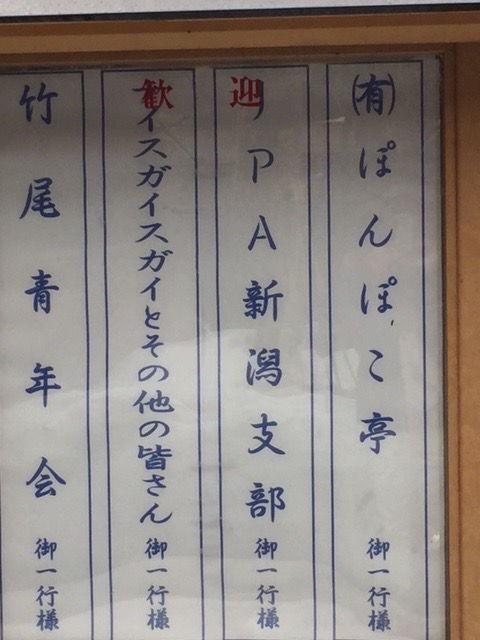 ㈲ぽんぽこ亭 御一行様
迎
PA新潟支部 御一行様
歓
イスガイスガイとその他の皆さん 御一行様
竹尾青年会 御一行様